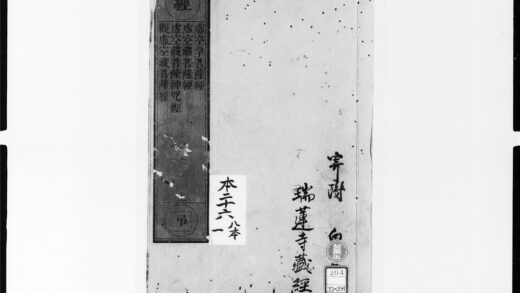 寄附
瑞蓮寺藏經
204
本二十六
八本
一
經
虛空孕菩薩經
虛空藏菩薩經
虛空藏菩薩神咒經
觀虛空藏菩薩經